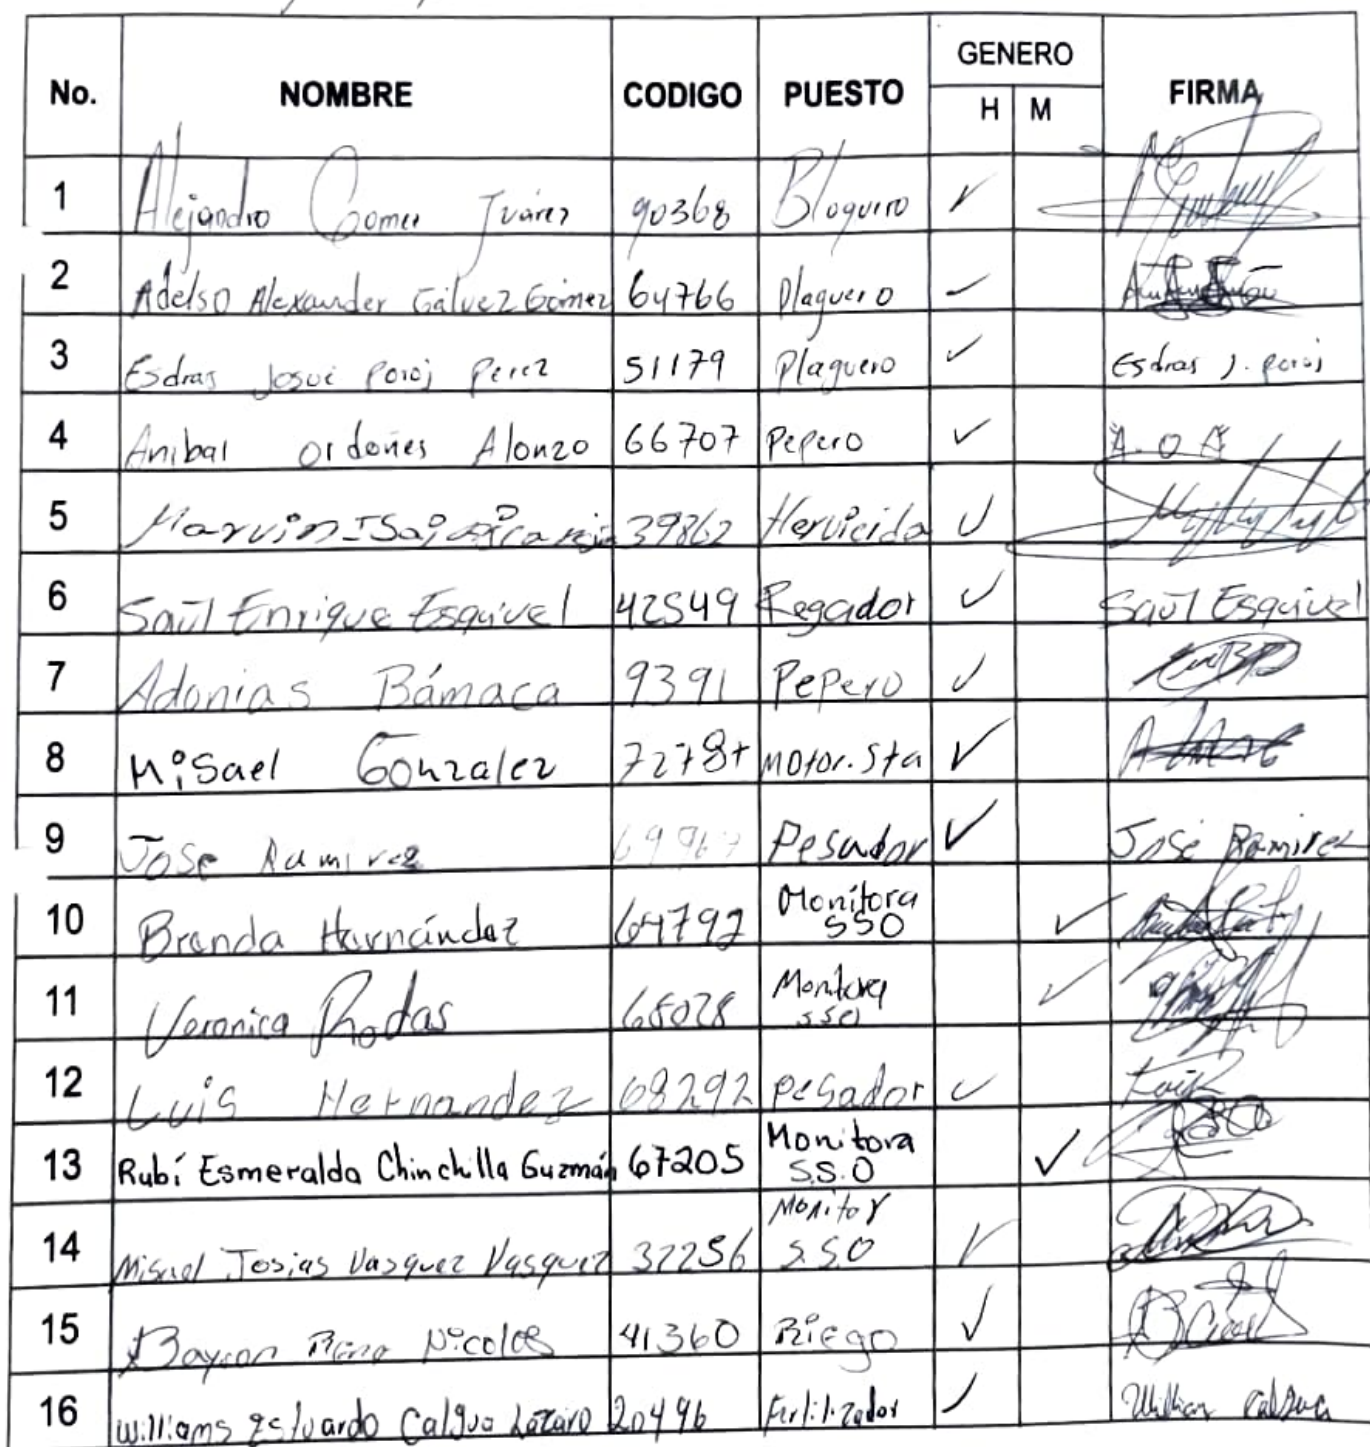 No. NOMBRE CODIGO PUESTO GENERO H M FIRMA
1 Alejandro Gomez Juárez 90368 Bloquero
2 Adelso Alexander Gálvez Gómez 64766 Plaguero
3 Esdras Josué Poroj Perez 51179 Plaguero Esdras J. Poroj
4 Anibal Ordoñes Alonzo 66707 Pepero A.O.A
5 Marvin Isai 39862 Hervicida
6 Saúl Enrique Esquivel 42549 Regador Saúl Esquivel
7 Adonias Bámaca 9391 Pepero
8 Misael Gonzalez Motorista
9 Jose Ramirez Pesador José Ramirez
10 Brenda Hernández 64792 Monitora SSO
11 Veronica Rodas 68028 Monitora SSO
12 Luis Hernandez 68292 Pesador
13 Rubí Esmeralda Chinchilla Guzmán 67205 Monitora S.S.O
14 Misael Josias Vasquez Vasquez 32256 Monitor S.S.O
15 Bayron Nicolas 41360 Riego
16 Williams Estuardo Calgua Lázaro 20496 Fertilizador William Calgua